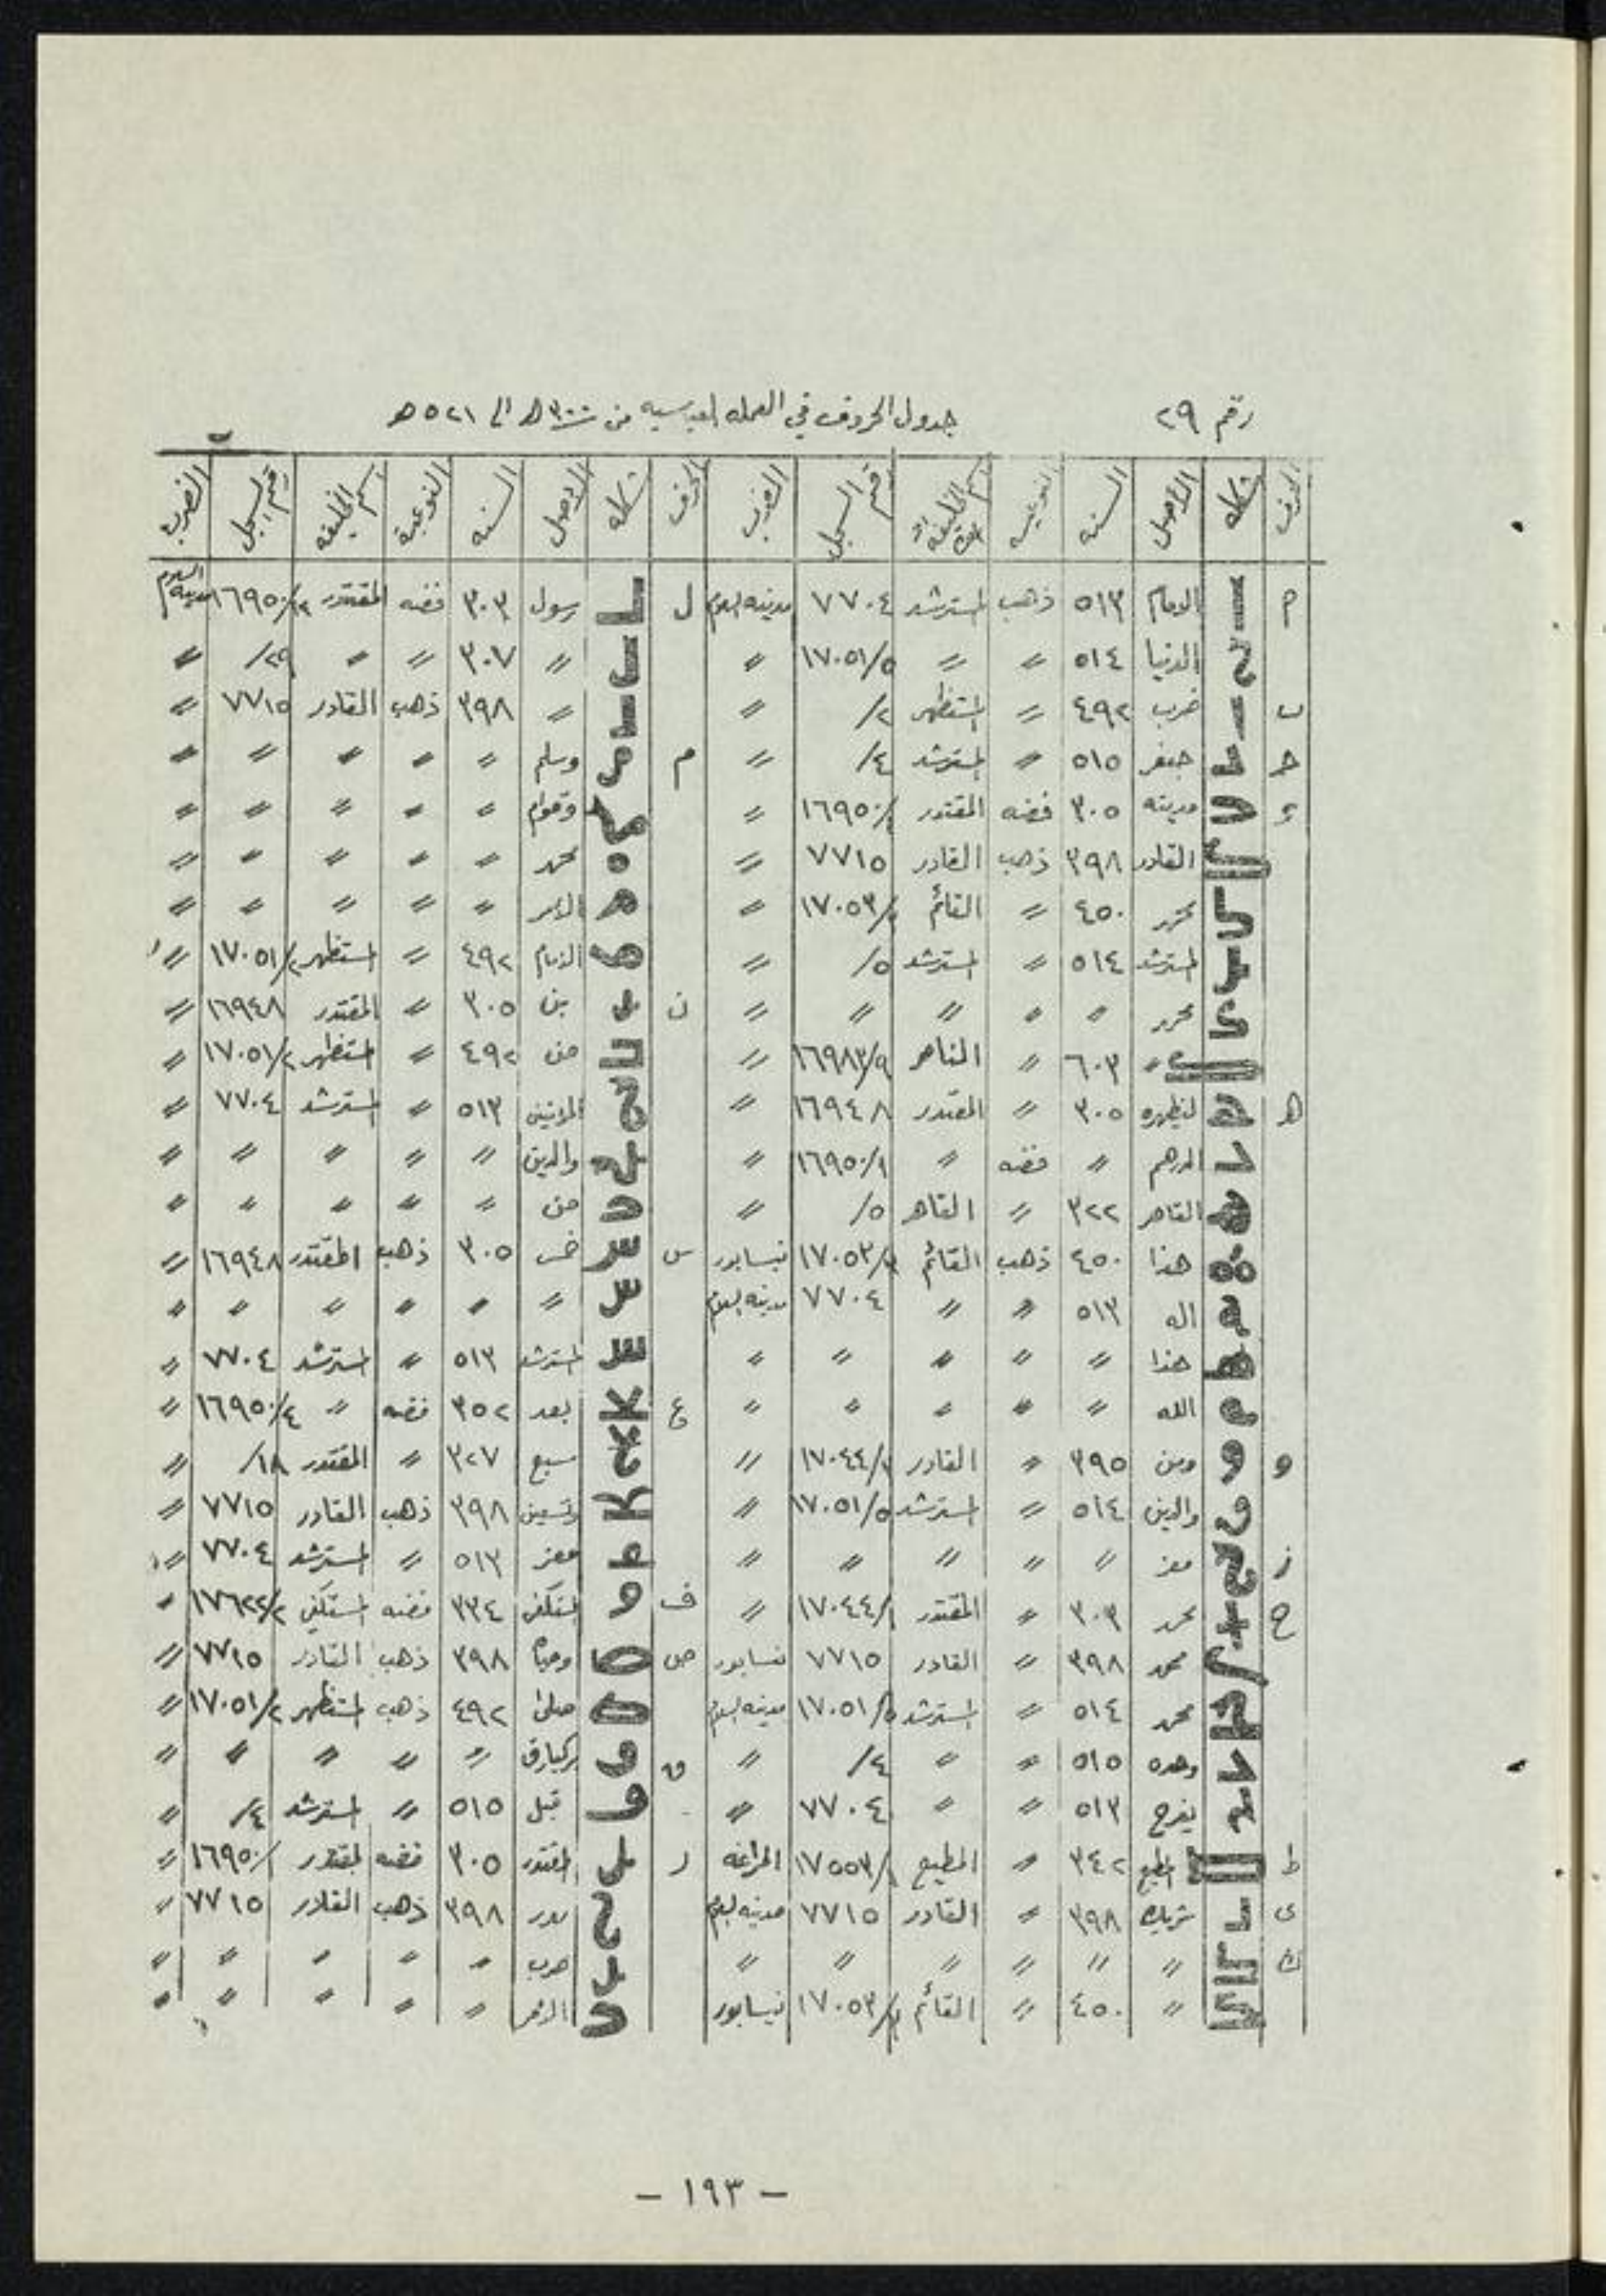 رقم ٢٩ جدول الحروف في العمله العباسيه من ٣٠٠هـ الى ٥٢١هـ
الحرف شكله الأصل السنه النوعيه اسم الخليفه رقم السجل الضرب الحرف شكله الأصل السنه النوعية اسم الخليفه رقم السجل الضرب
م الامام ٥١٣ ذهب المسترشد ٧٧٠٤ مدينه السلام ل رسول ٣٠٣ فضه المقتدر ١٦٩٥٠ مدينه السلام
الدنيا ٥١٤ 〃 〃 ١٧٠٥١/٥ 〃 〃 ٣٠٧ 〃 〃 /٢٩ 〃
ب ضرب ٤٩٢ 〃 المستظهر /٢ 〃 〃 ٣٩٨ ذهب القادر ٧٧١٥ 〃
جعفر ٥١٥ 〃 المسترشد /٤ 〃 م وسلم 〃 〃 〃 〃 〃
مدينه ٣٠٥ فضه المقتدر ١٦٩٥٠ 〃 〃 〃 〃 〃 〃
القادر ٣٩٨ ذهب القادر ٧٧١٥ 〃 محمد 〃 〃 〃 〃 〃
٤٥٠ 〃 القائم ١٧٠٥٣ 〃 〃 〃 〃 〃 〃
المسترشد ٥١٤ 〃 المسترشد /٥ 〃 الامام ٤٩٢ 〃 المستظهر ١٧٠٥١/٢ 〃
〃 〃 〃 〃 〃 ن بن ٣٠٥ 〃 المقتدر ١٦٩٤٨ 〃
〃 ٦٠٣ 〃 الناصر ١٦٩٨٣/٩ 〃 من ٤٩٢ 〃 المستظهر ١٧٠٥١/٢ 〃
ه ليظهره ٣٠٥ 〃 المقتدر ١٦٩٤٨ 〃 ٥١٣ 〃 المسترشد ٧٧٠٤ 〃
الدرهم 〃 فضه 〃 ١٦٩٥٠/١ 〃 والدين 〃 〃 〃 〃 〃
القاهر ٣٢٢ 〃 القاهر /٥ 〃 من 〃 〃 〃 〃 〃
هذا ٤٥٠ ذهب القائم ١٧٠٥٣ نيسابور س خمس ٣٠٥ ذهب المقتدر ١٦٩٤٨ 〃
اله ٥١٣ 〃 〃 ٧٧٠٤ مدينه السلام 〃 〃 〃 〃 〃 〃
هذا 〃 〃 〃 〃 〃 المسترشد ٥١٣ 〃 المسترشد ٧٧٠٤ 〃
الله 〃 〃 〃 〃 〃 ع بعد ٣٥٢ فضه 〃 ١٦٩٥٠/٤ 〃
و ومن ٣٩٥ 〃 القادر ١٧٠٤٤ 〃 سبع ٣٢٧ 〃 المقتدر /١٨ 〃
والدين ٥١٤ 〃 المسترشد ١٧٠٥١/٥ 〃 وتسعين ٣٩٨ ذهب القادر ٧٧١٥ 〃
ز معز 〃 〃 〃 〃 〃 معز ٥١٣ 〃 المسترشد ٧٧٠٤ 〃
ح محمد ٣٠٣ 〃 المقتدر ١٧٠٤٤/١ 〃 ف المستكفي ٣٣٤ فضه المستكفي ١٧٦٢٢/٢ 〃
محمد ٣٩٨ 〃 القادر ٧٧١٥ نيسابور ص ٣٩٨ ذهب القادر ٧٧١٥ 〃
محمد ٥١٤ 〃 المسترشد ١٧٠٥١/٥ مدينه السلام صلى ٤٩٢ ذهب المستظهر ١٧٠٥١/٢ 〃
وحده ٥١٥ 〃 〃 /٤ 〃 ق بركيارق 〃 〃 〃 〃 〃
يفرح ٥١٣ 〃 〃 ٧٧٠٤ 〃 قبل ٥١٥ 〃 المسترشد /٤ 〃
ط المطيع ٣٤٢ 〃 المطيع ١٧٥٥٣/١ المراغه ر المقتدر ٣٠٥ فضه المقتدر ١٦٩٥٠/١ 〃
ى شريك ٣٩٨ 〃 القادر ٧٧١٥ مدينه السلام ٣٩٨ ذهب القادر ٧٧١٥ 〃
ك 〃 〃 〃 〃 〃 〃 ضرب 〃 〃 〃 〃 〃
〃 ٤٥٠ 〃 القائم ١٧٠٥٣ نيسابور 〃 〃 〃 〃 〃
— ١٩٣ —